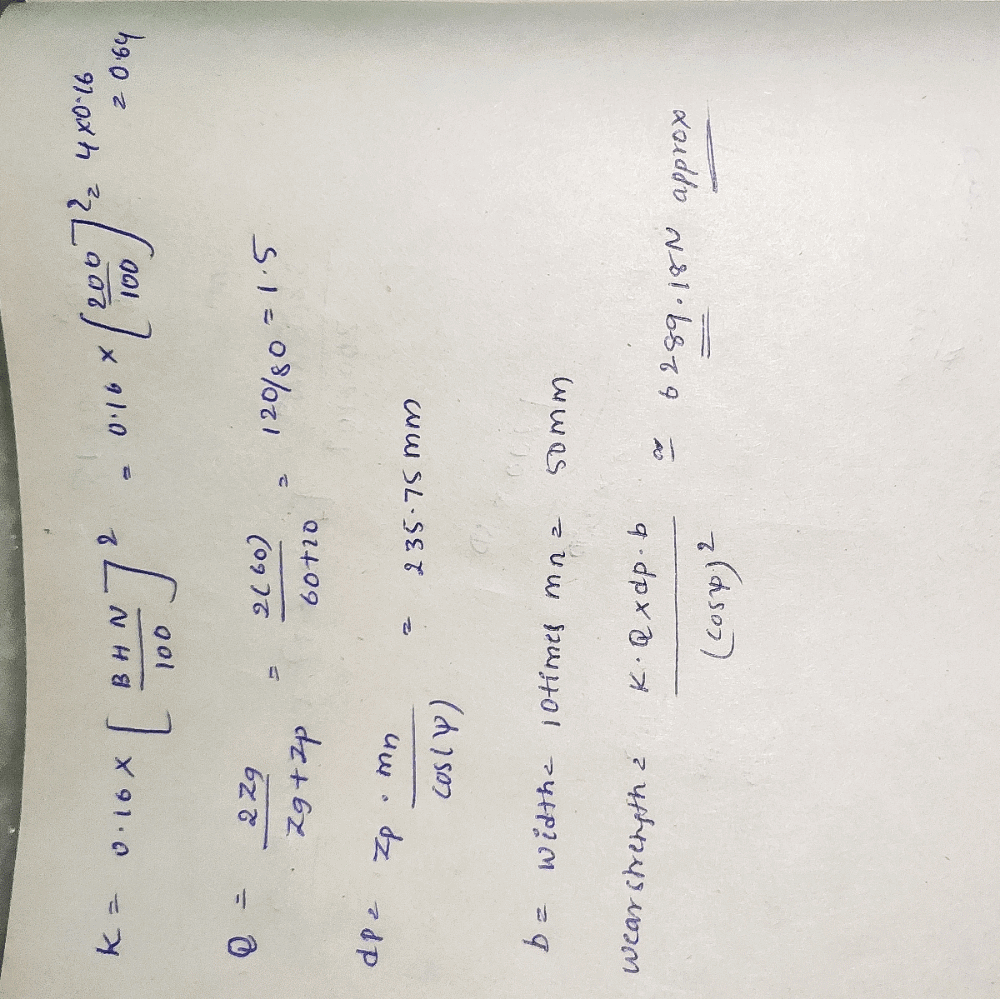 K = 0.16 x [BHN/100]² = 0.16 x [200/100]² = 4x0.16
= 0.64
Q = 2Zg/Zg+Zp = 2(60)/60+20 = 120/80 = 1.5
dp = Zp . mn/cos(ψ) = 235.75 mm
b = width = 10times mn = 50mm
wear strength = K.Q x dp.b/(cosψ)² ≅ 6289.18N approx